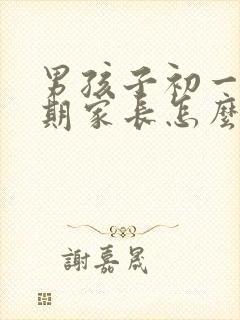 男孩子初一
期家长怎麼
謝嘉晟